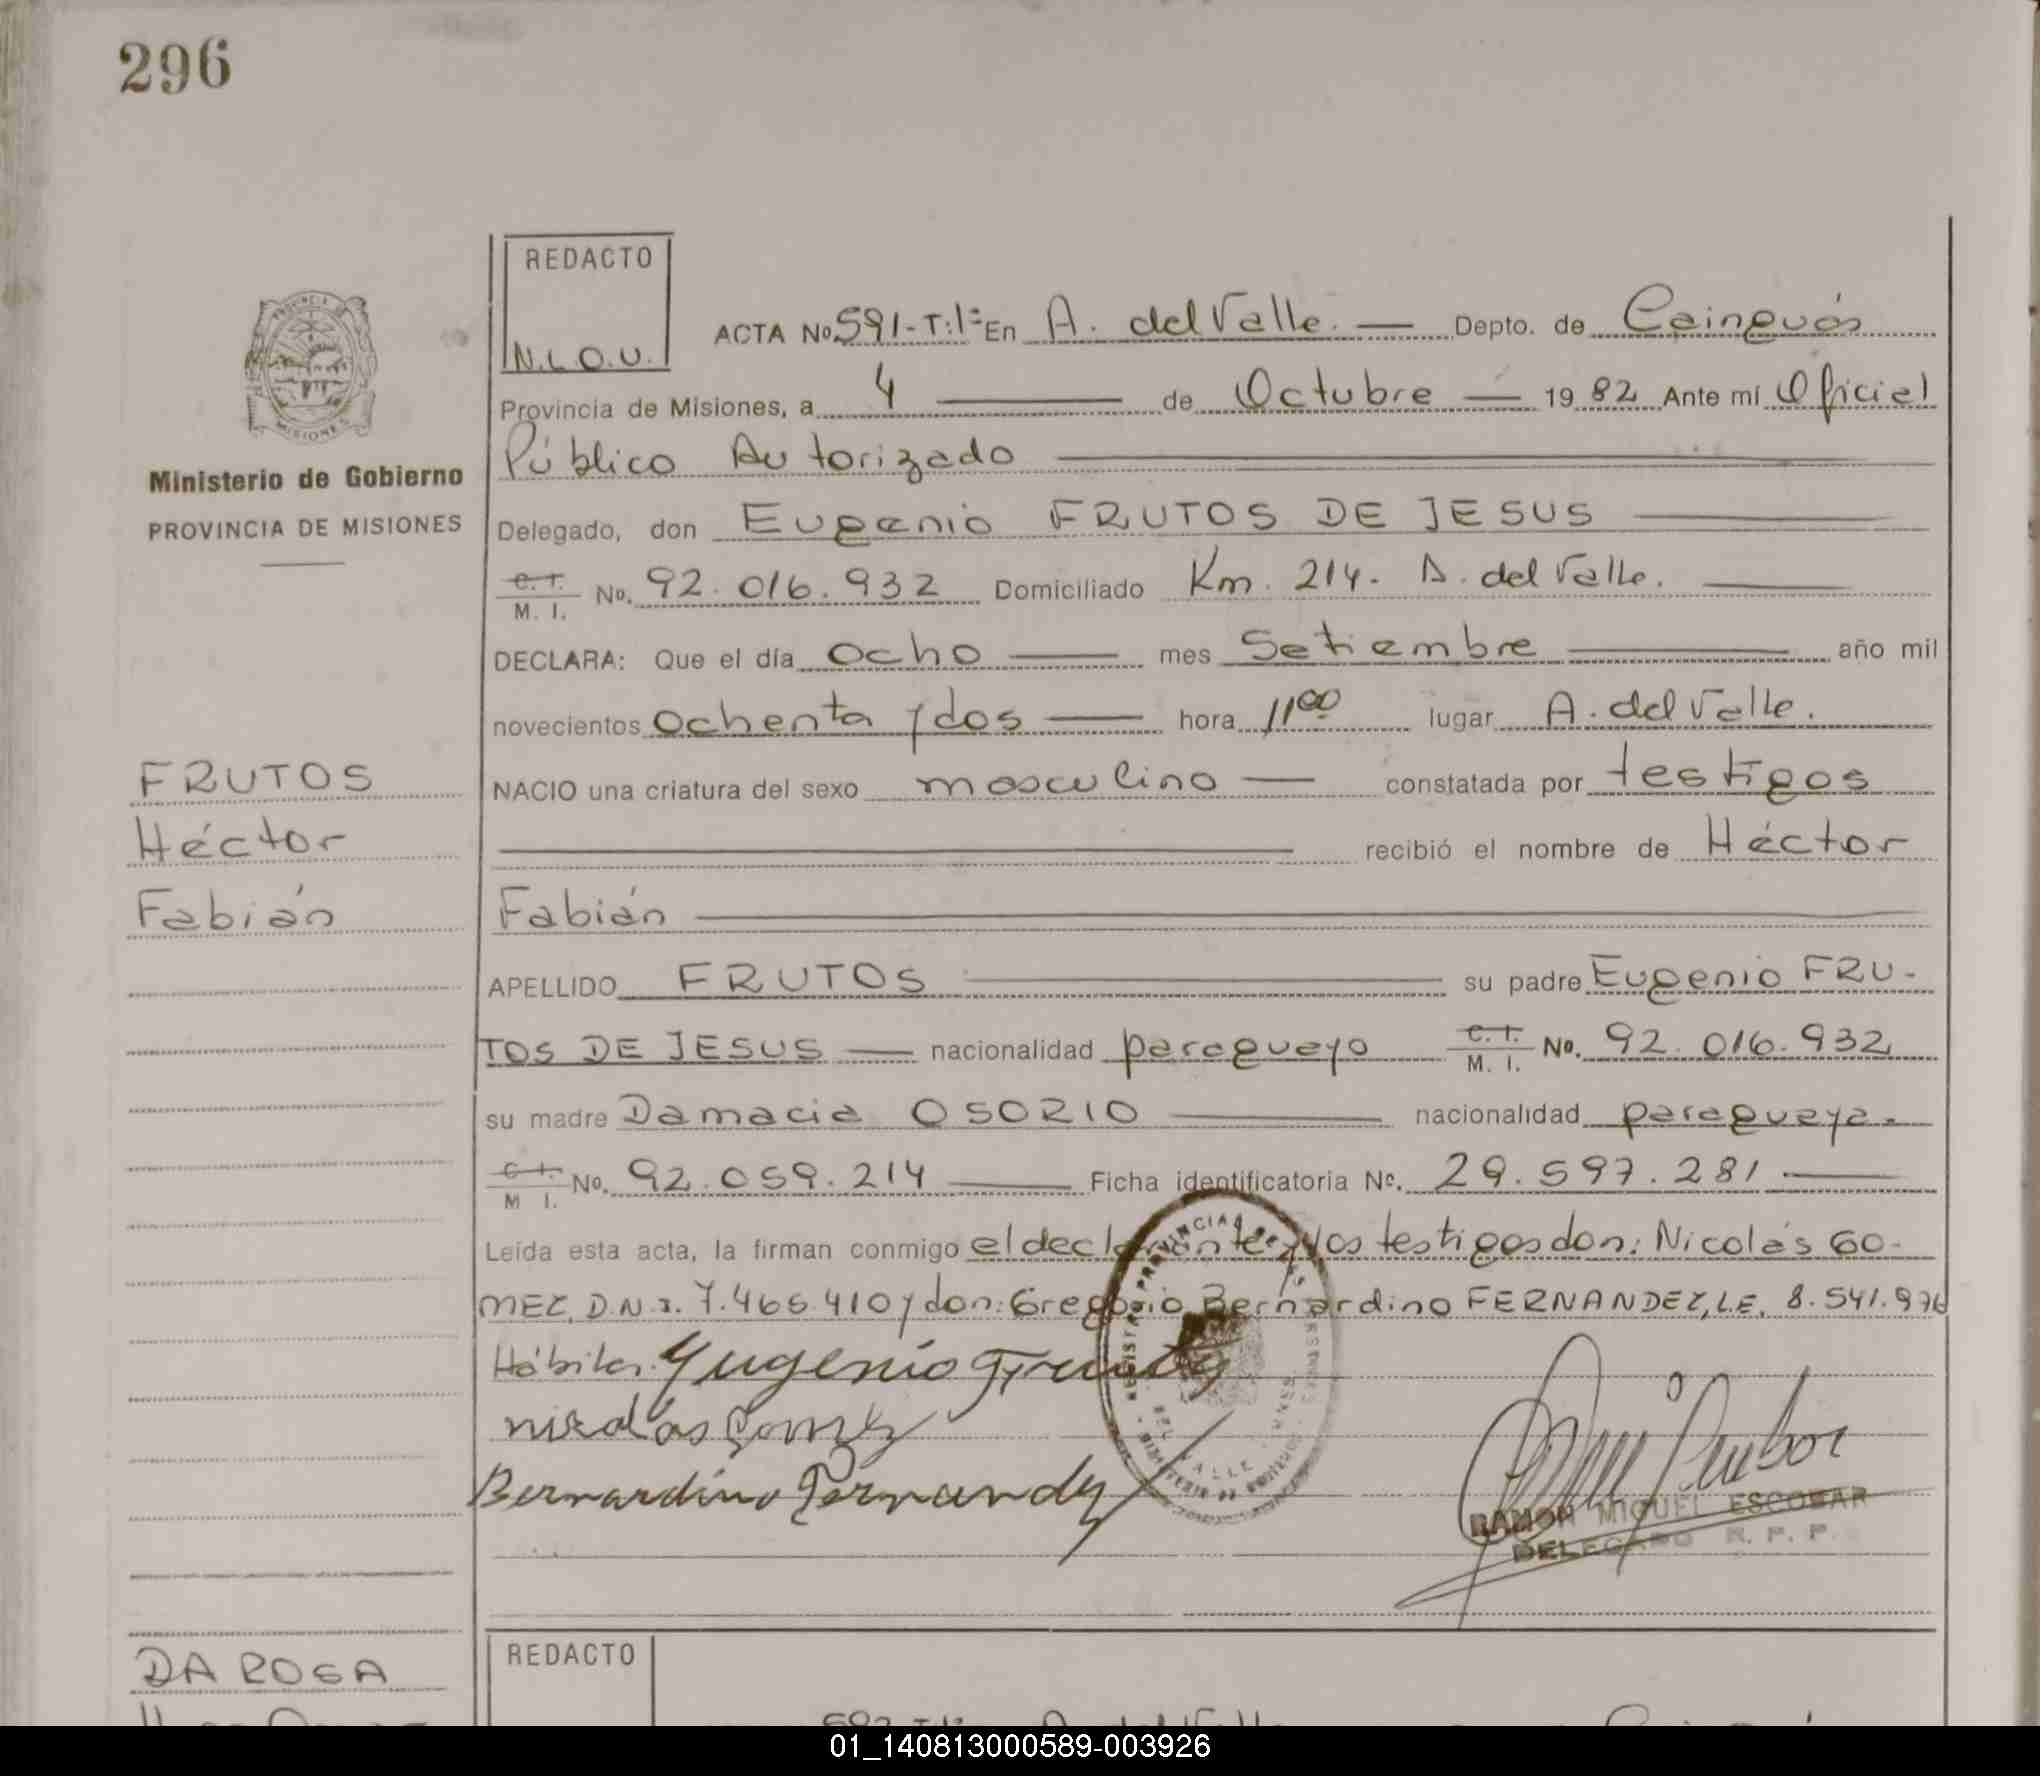 296
REDACTO
N.L.O.U.
ACTA No. 591-T:1º En A. del Valle. Depto. de Cainguás
Provincia de Misiones, a 4 de Octubre 1982 Ante mí Oficial
Público Autorizado
MISIONES
Ministerio de Gobierno
PROVINCIA DE MISIONES
Delegado, don Eugenio FRUTOS DE JESUS
C.I. M. I. No. 92.016.932 Domiciliado Km. 214. A. del Valle.
DECLARA: Que el día ocho mes Setiembre año mil
novecientos ochenta y dos hora 11 00 lugar A. del Valle.
FRUTOS
Héctor
Fabián
NACIO una criatura del sexo masculino constatada por testigos
recibió el nombre de Héctor
Fabián
APELLIDO FRUTOS su padre Eugenio FRU-
TOS DE JESUS nacionalidad paraguayo C.I. M. I. No. 92.016.932
su madre Damacia OSORIO nacionalidad paraguaya.
C.I. M I. No. 92.059.214 Ficha identificatoria No. 29.597.281
Leída esta acta, la firman conmigo el declarante y los testigos don: Nicolás GO-
MEZ, D.N.I. 7.466.410 y don: Gregorio Bernardino FERNANDEZ, L.E. 8.541.976
Hábiles. Eugenio Frutos
nicolás Gomez
Bernardino Fernandez
RAMON MIGUEL ESCOBAR
DELEGADO R. P. P.
DA ROSA
REDACTO
01_140813000589-003926